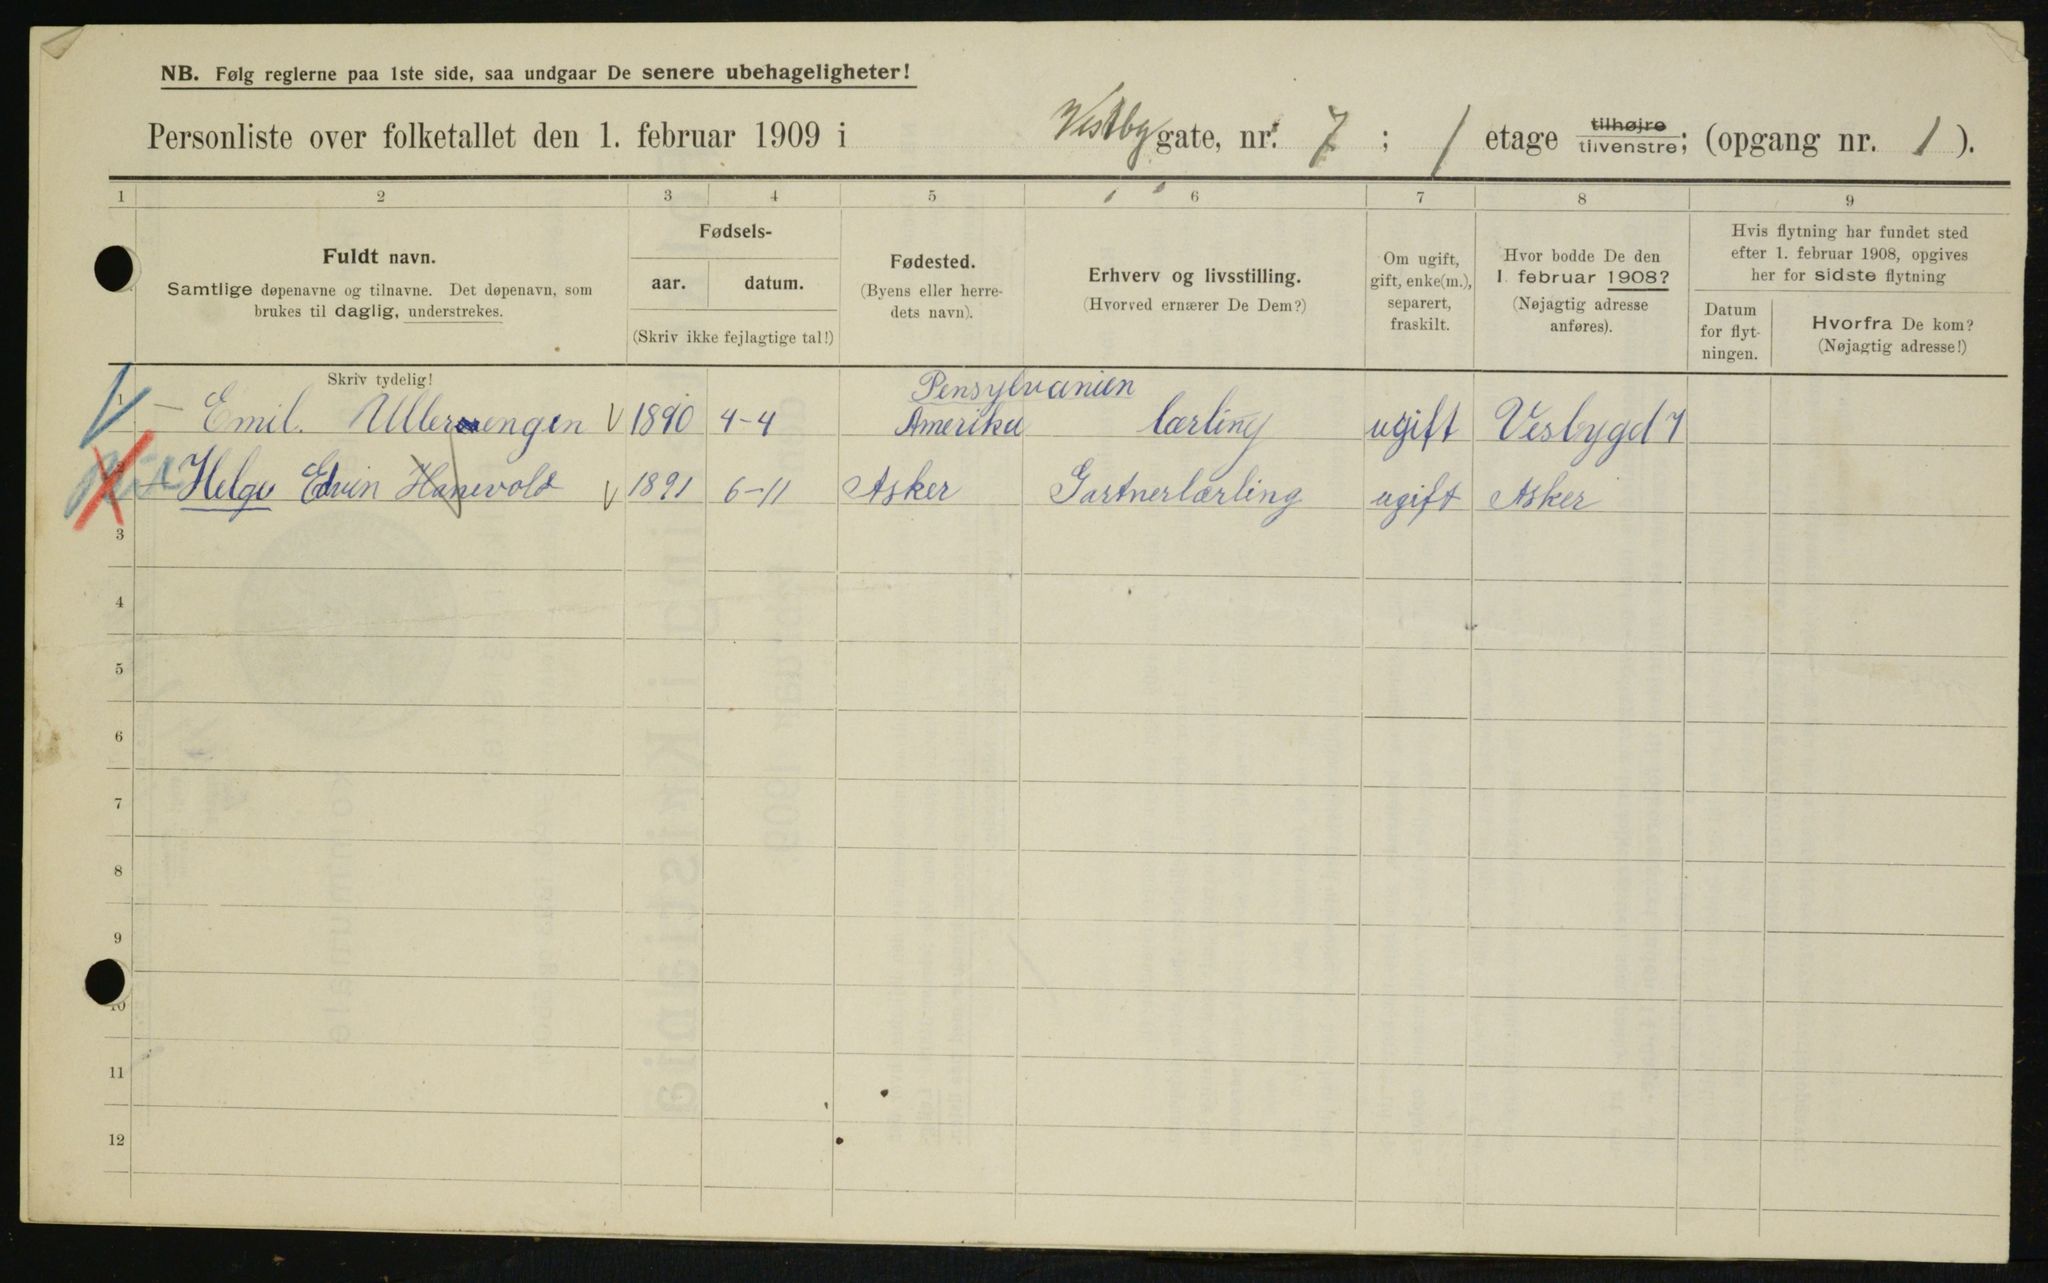 NB. Følg reglerne paa 1ste side, saa undgaar De senere ubehageligheter!
Personliste over folketallet den 1. februar 1909 i Vestby gate, nr. 7 ; 1 etage tilhøjre tilvenstre; (opgang nr. 1 ).
1 2 3 4 5 6 7 8 9
Fuldt navn.
Samtlige døpenavne og tilnavne. Det døpenavn, som
brukes til daglig, understrekes.
Skriv tydelig!
Fødsels-
aar. datum.
(Skriv ikke fejlagtige tal!)
Fødested.
(Byens eller herre-
dets navn).
Erhverv og livsstilling.
(Hvorved ernærer De Dem?)
Om ugift,
gift, enke(m.),
separert,
fraskilt.
Hvor bodde De den
1. februar 1908?
(Nøjagtig adresse
anføres).
Hvis flytning har fundet sted
efter 1. februar 1908, opgives
her for sidste flytning
Datum
for flyt-
ningen.
Hvorfra De kom?
(Nøjagtig adresse!)
Pensylvanien
1 Emil. Ullerengen 1890 4-4 Amerika lærling ugift Vesbygd 7
2 Helge Edvin Hanevold 1891 6-11 Asker Gartnerlærling ugift Asker
3
4
5
6
7
8
9
10
11
12